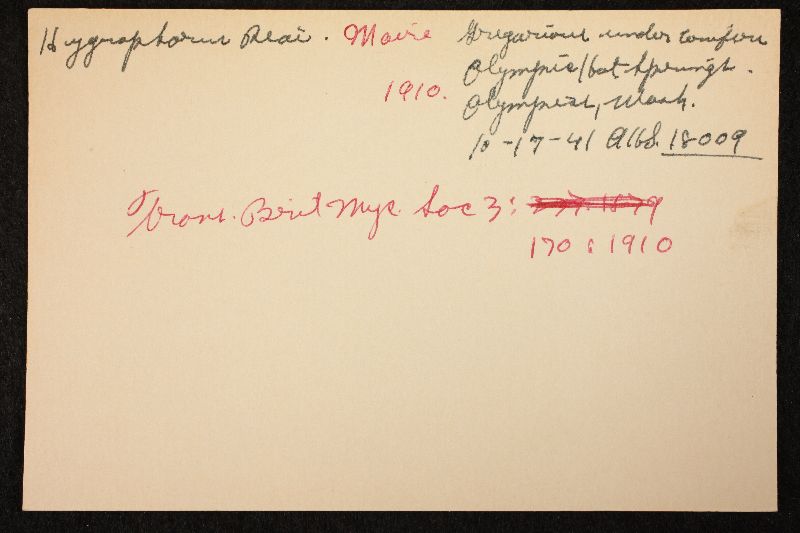 Hygrophorus Reai. Maire
1910.
Gregarious under conifers
Olympic Hot Springs.
Olympics, Wash.
10-17-41 AHS. 18009
Trans. Brit Myc. Soc 3:
170 : 1910